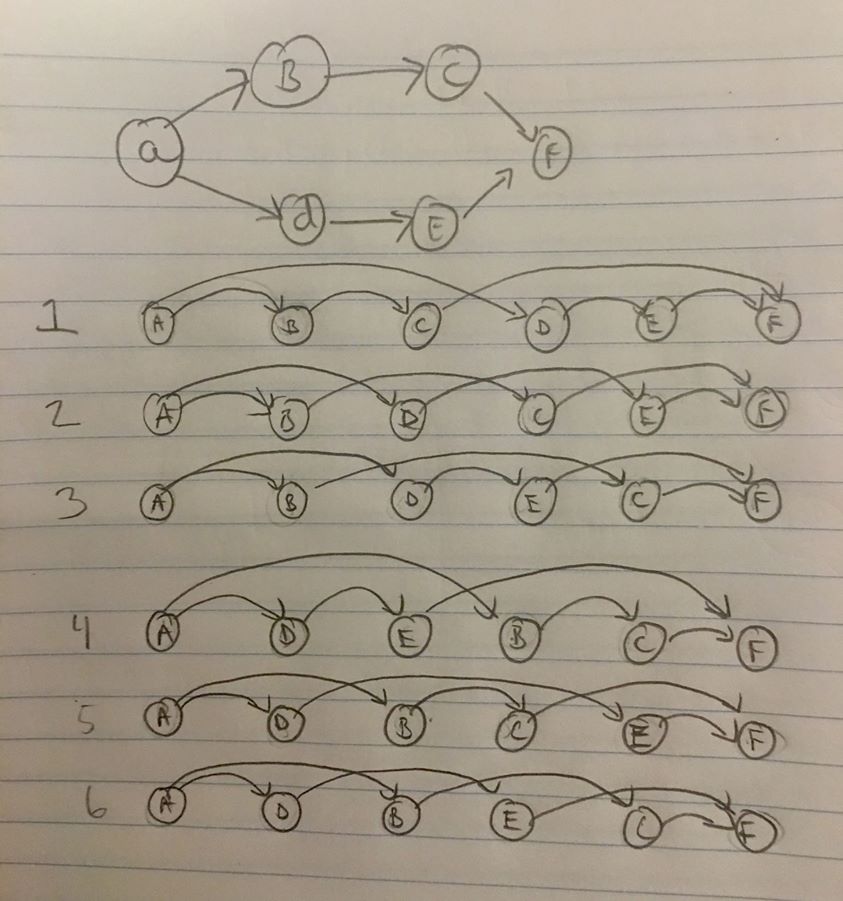 B C
a F
d E
1 A B C D E F
2 A B D C E F
3 A B D E C F
4 A D E B C F
5 A D B C E F
6 A D B E C F